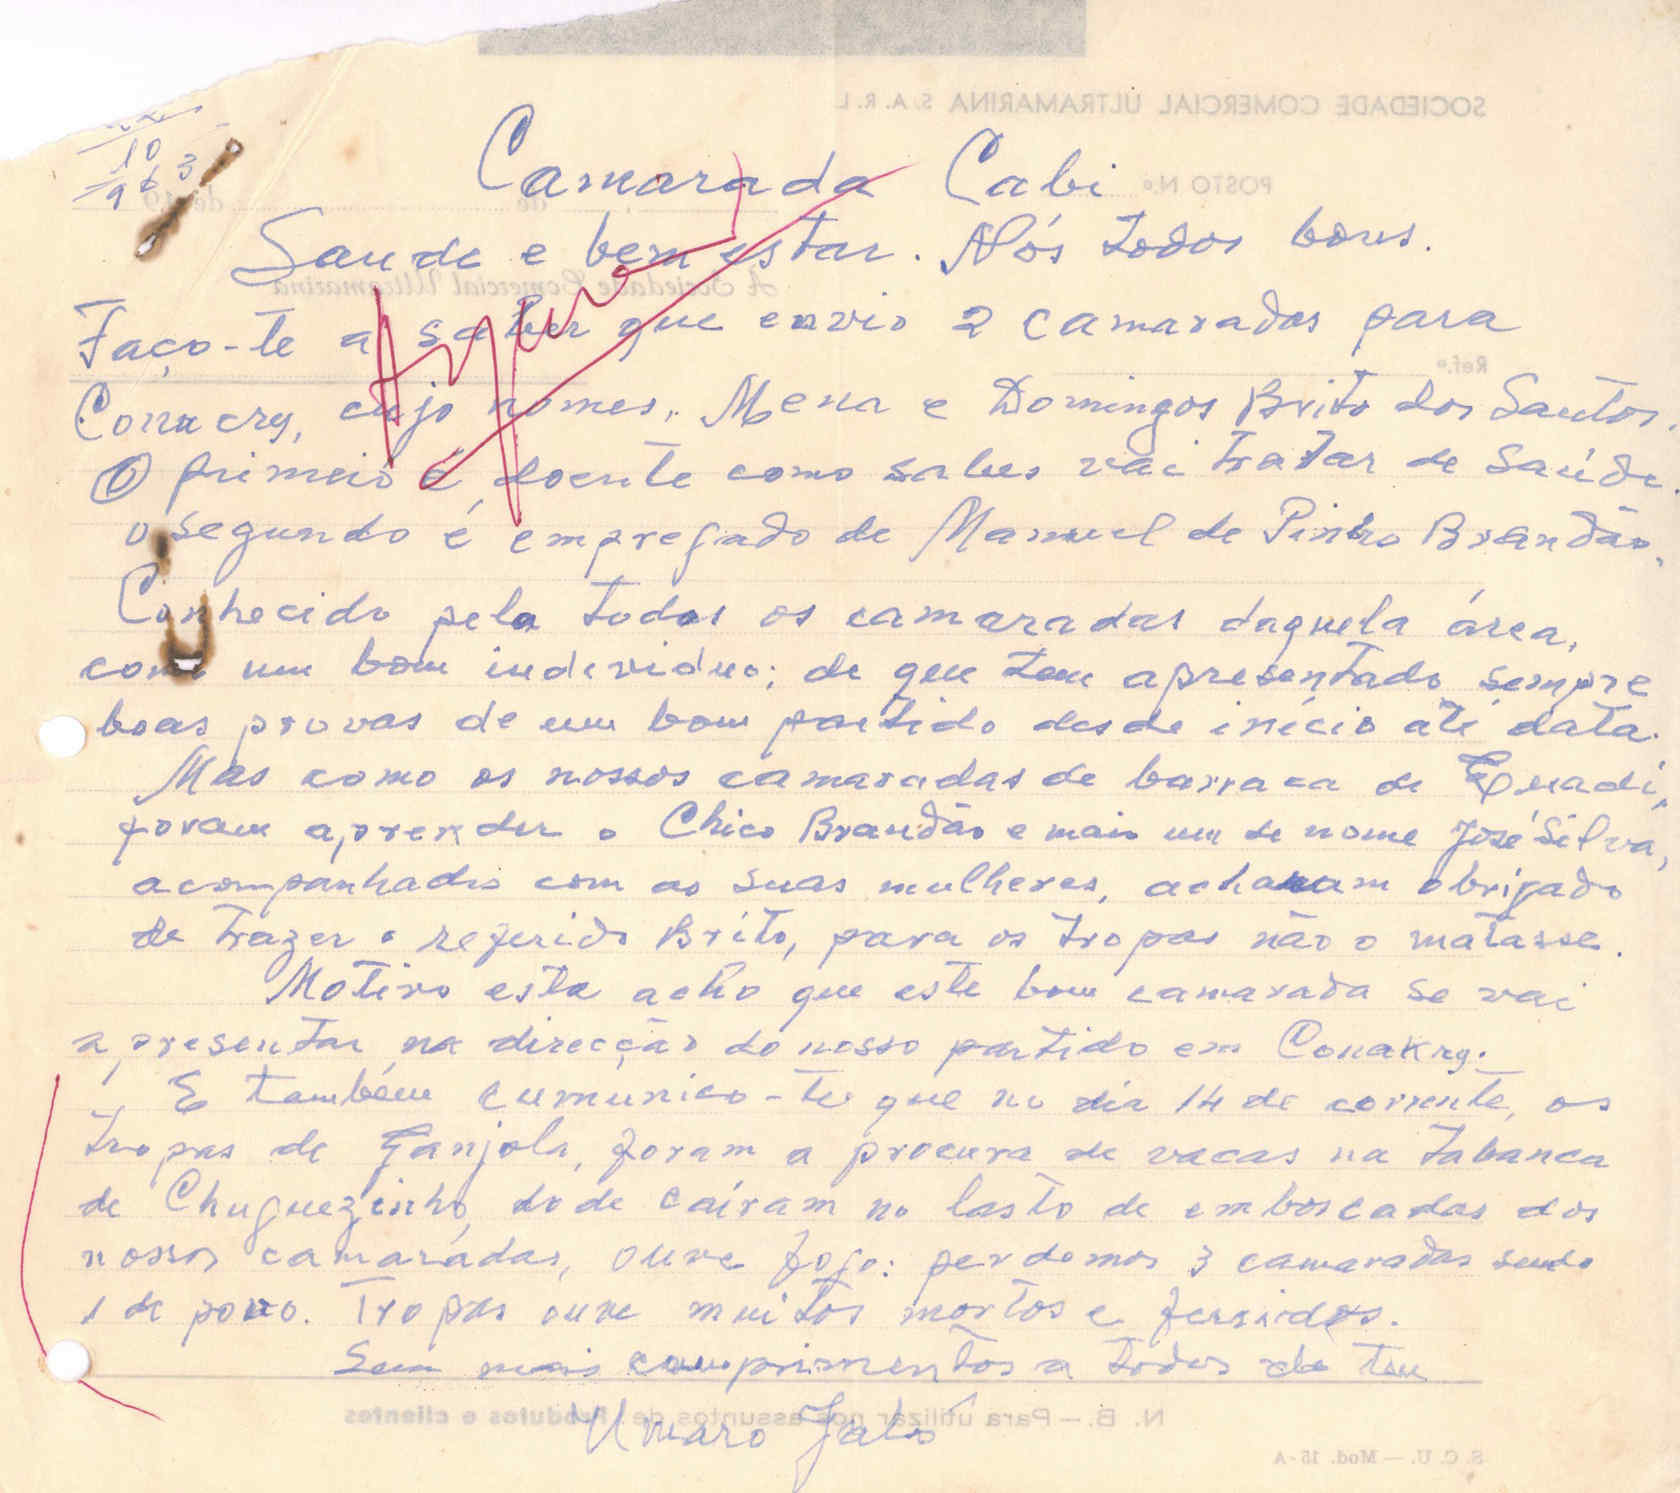 10
963
Camarada Cabi
Saude e bem estar. Nós todos bons.
Faço-te a saber que envio 2 camaradas para
Conacry, cujo nomes, Mena e Domingos Brito dos Santos.
O primeiro é doente como sabes vai tratar de Saúde.
o segundo é empregado de Manuel de Pinho Brandão,
Conhecido pela todos os camaradas daquela área,
como um bom individuo; de que tem apresentado sempre
boas provas de um bom partido desde início até data.
Mas como os nossos camaradas de barraca de
foram aprender o Chico Brandão e mais um de nome José Silva,
acompanhados com as suas mulheres, acharam obrigado
de trazer o referido Brito, para os tropas não o matasse.
Motivo esta acho que este bom camarada se vai
apresentar na direcção do nosso partido em Conakry.
E também cumunico-te que no dia 14 de corrente, os
tropas de Ganjola, foram a procura de vacas na tabanca
de Chuguezinho, dode caíram no lasto de emboscadas dos
nossos camaradas, ouve fogo: perdemos 3 camaradas sendo
1 de povo. Tropas ouve muitos mortos e ferridos.
Sem mais comprimentos a todos de teu
Umaro Jaló
SOCIEDADE COMERCIAL ULTRAMARINA S.A.R.L.
POSTO N.º
de
de 19
À Sociedade Comercial Ultramarina
Ref.ª
N. B. — Para utilizar nos assuntos de: Produtos e clientes
S. C. U. — Mod. 15-A